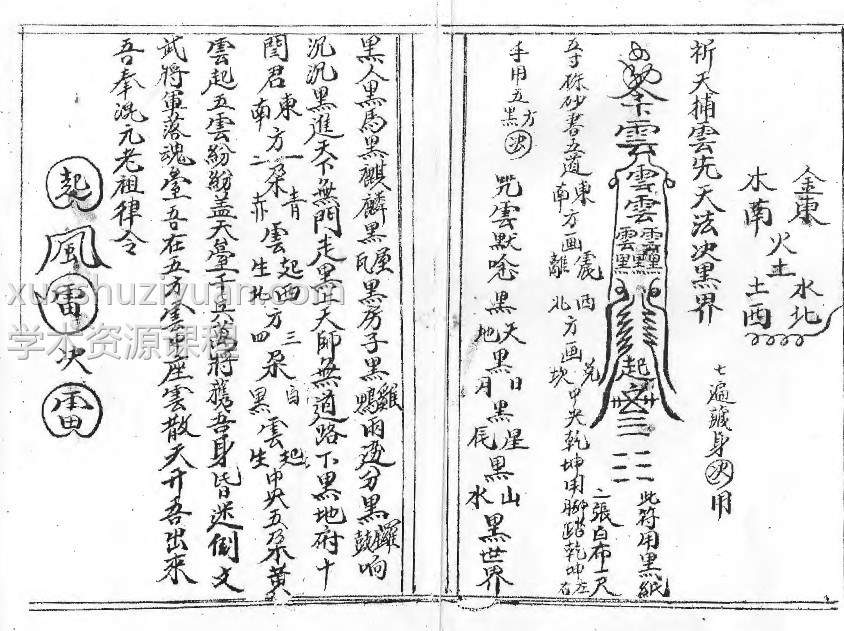 金東 火土 水北
木南 土西
七遍藏身決用
祈天捕雲先天法决黑界
雲
雲雲
起
此符用黑紙
二張白布一尺
五寸硃砂書五道東方画震西兌
南離北方画坎中央乾坤用脚踏乾坤左右
手用五方黑决
咒雲默唸黑天黑日黑星黑山黑世界
地月辰水
黑人黑馬黑麒麟黑瓦屋黑房子黑雞鴨兩边分黑鑼鼓响
沉沉黑進天下無門走黑上天師無道路下黑地府十
閻君東方一朵青雲起西方三朵白雲起中央五朵黄
南二赤生北四黑生
雲起五雲紛紛盖天堂千兵萬将護吾身皆迷倒文
武將軍落魂堂吾在五方雲中座雲散天开吾出來
吾奉混元老祖律令
起風雷次雷
xueshuziyuan.com
学术资源课程